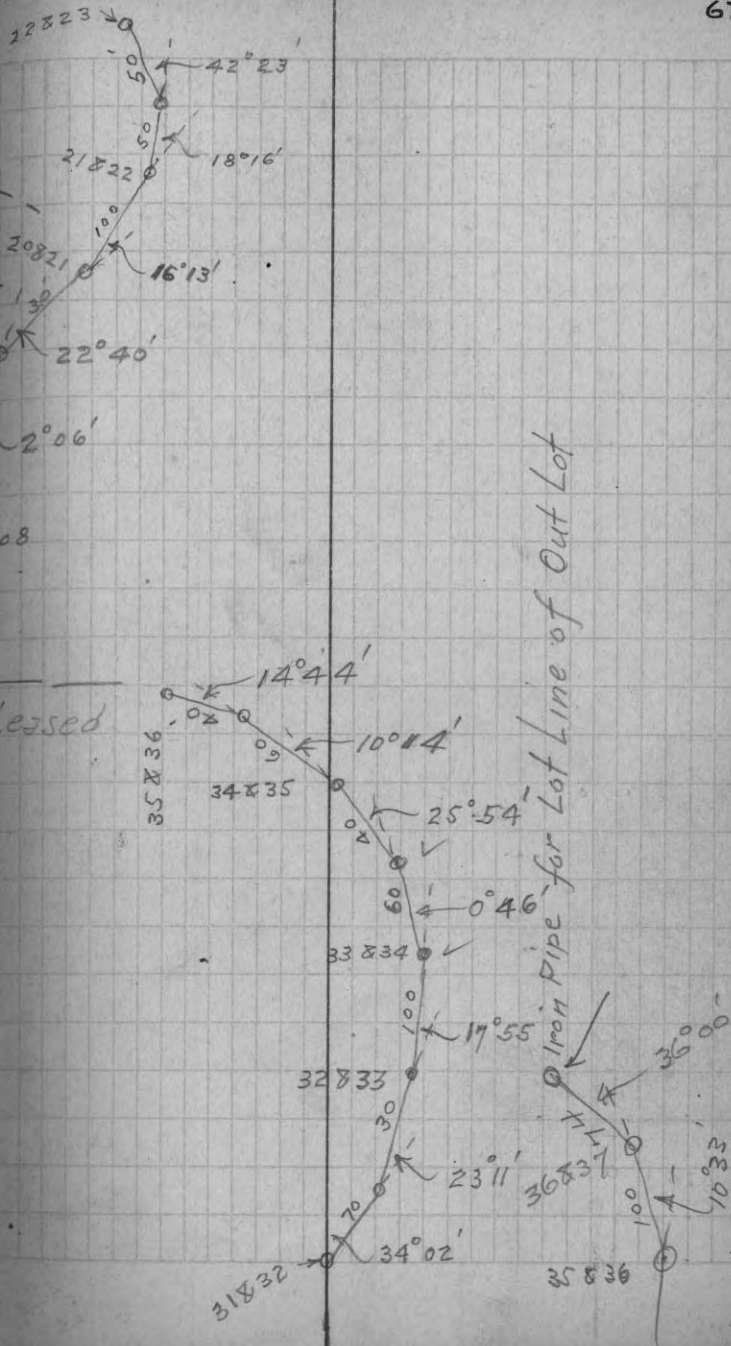 67
22&23
50'
42°23'
50
18°16'
21&22
100
16°13'
20&21
30'
22°40'
2°06'
08
leased
14°44'
40
35&36
60
10°14'
34&35
40
25°54'
60
0°46'
33&34
100
17°55
32&33
30
23°11'
70
34°02'
31&32
Iron Pipe for Lot Line of Out Lot
36°00'
44
36&37
100
10°33'
35&36